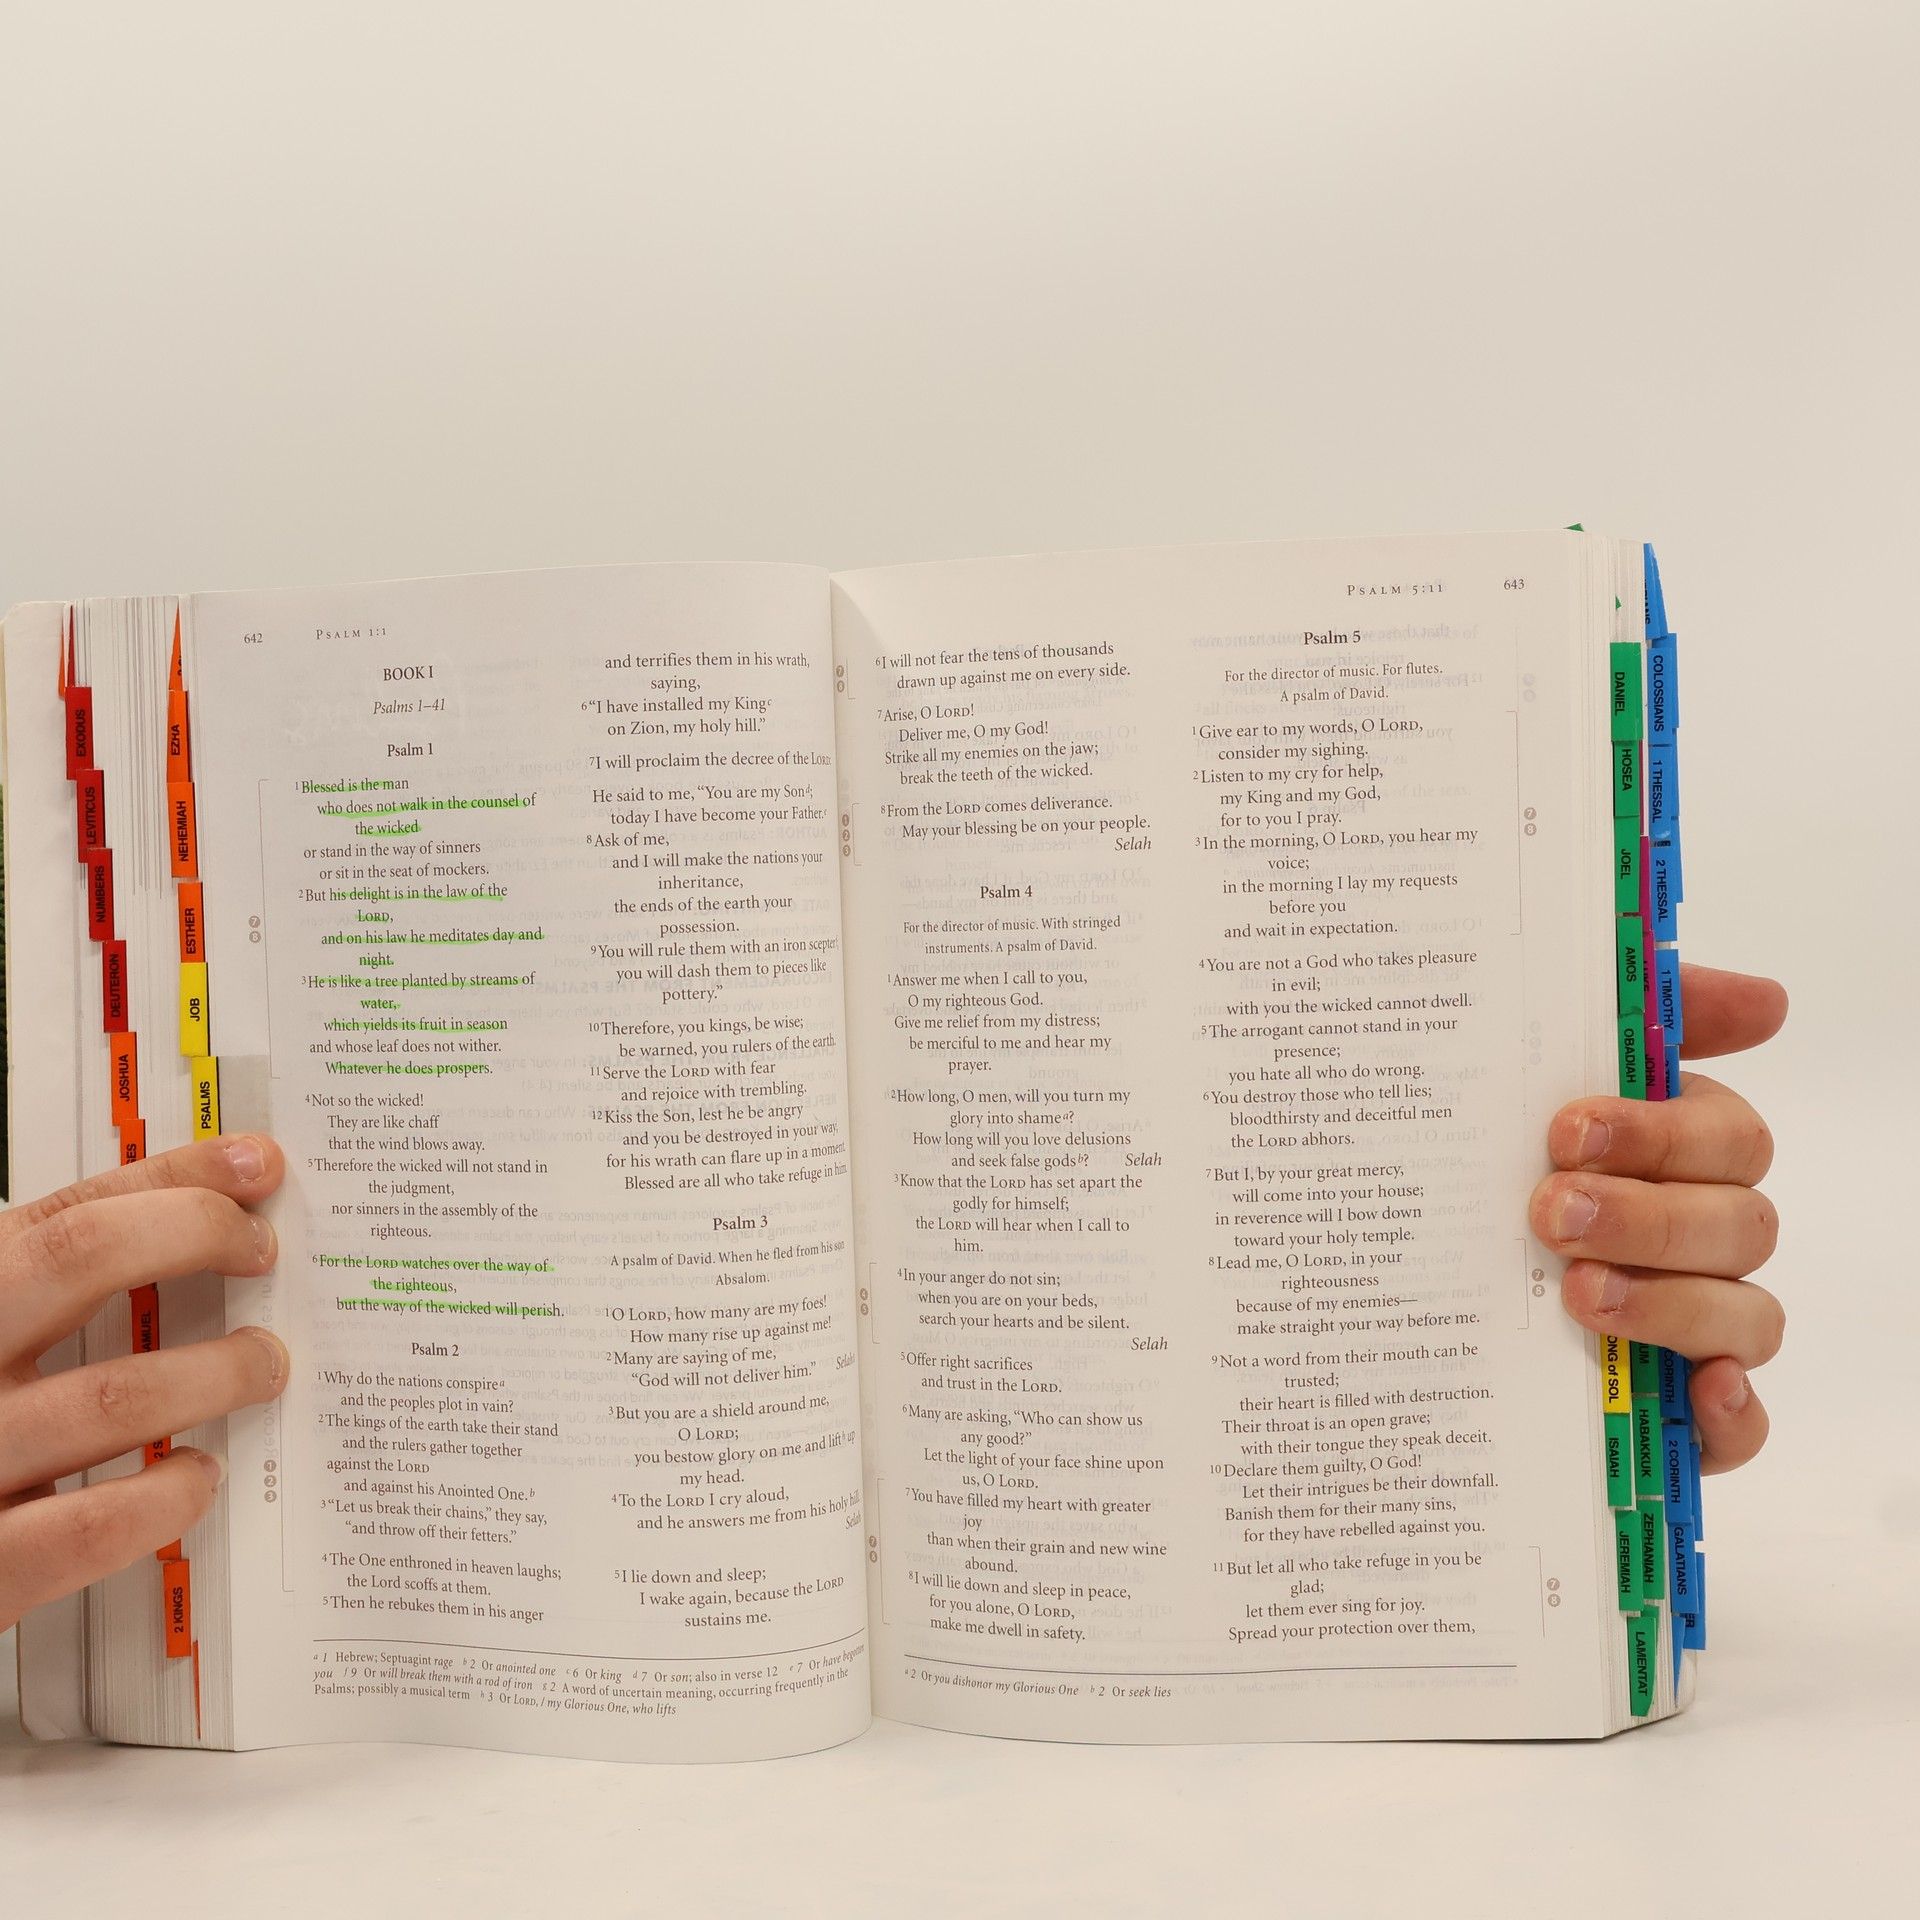 642
PSALM 1:1
BOOK I
Psalms 1–41
Psalm 1
1Blessed is the man
who does not walk in the counsel of
the wicked
or stand in the way of sinners
or sit in the seat of mockers.
2But his delight is in the law of the
LORD,
and on his law he meditates day and
night.
3He is like a tree planted by streams of
water,
which yields its fruit in season
and whose leaf does not wither.
Whatever he does prospers.
4Not so the wicked!
They are like chaff
that the wind blows away.
5Therefore the wicked will not stand in
the judgment,
nor sinners in the assembly of the
righteous.
6For the LORD watches over the way of
the righteous,
but the way of the wicked will perish.
Psalm 2
1Why do the nations conspirea
and the peoples plot in vain?
2The kings of the earth take their stand
and the rulers gather together
against the LORD
and against his Anointed One.b
3“Let us break their chains,” they say,
“and throw off their fetters.”
4The One enthroned in heaven laughs;
the Lord scoffs at them.
5Then he rebukes them in his anger
and terrifies them in his wrath,
saying,
6“I have installed my Kingc
on Zion, my holy hill.”
7I will proclaim the decree of the LORD:
He said to me, “You are my Sond;
today I have become your Father.e
8Ask of me,
and I will make the nations your
inheritance,
the ends of the earth your
possession.
9You will rule them with an iron scepterf;
you will dash them to pieces like
pottery.”
10Therefore, you kings, be wise;
be warned, you rulers of the earth.
11Serve the LORD with fear
and rejoice with trembling.
12Kiss the Son, lest he be angry
and you be destroyed in your way,
for his wrath can flare up in a moment.
Blessed are all who take refuge in him.
Psalm 3
A psalm of David. When he fled from his son
Absalom.
1O LORD, how many are my foes!
How many rise up against me!
2Many are saying of me,
“God will not deliver him.” Selahg
3But you are a shield around me,
O LORD;
you bestow glory on me and lifth up
my head.
4To the LORD I cry aloud,
and he answers me from his holy hill.
Selah
5I lie down and sleep;
I wake again, because the LORD
sustains me.
a 1 Hebrew; Septuagint rage b 2 Or anointed one c 6 Or king d 7 Or son; also in verse 12 e 7 Or have begotten
you f 9 Or will break them with a rod of iron g 2 A word of uncertain meaning, occurring frequently in the
Psalms; possibly a musical term h 3 Or LORD, / my Glorious One, who lifts
PSALM 5:11
643
6I will not fear the tens of thousands
drawn up against me on every side.
7Arise, O LORD!
Deliver me, O my God!
Strike all my enemies on the jaw;
break the teeth of the wicked.
8From the LORD comes deliverance.
May your blessing be on your people.
Selah
Psalm 4
For the director of music. With stringed
instruments. A psalm of David.
1Answer me when I call to you,
O my righteous God.
Give me relief from my distress;
be merciful to me and hear my
prayer.
2How long, O men, will you turn my
glory into shamea?
How long will you love delusions
and seek false godsb? Selah
3Know that the LORD has set apart the
godly for himself;
the LORD will hear when I call to
him.
4In your anger do not sin;
when you are on your beds,
search your hearts and be silent.
Selah
5Offer right sacrifices
and trust in the LORD.
6Many are asking, “Who can show us
any good?”
Let the light of your face shine upon
us, O LORD.
7You have filled my heart with greater
joy
than when their grain and new wine
abound.
8I will lie down and sleep in peace,
for you alone, O LORD,
make me dwell in safety.
Psalm 5
For the director of music. For flutes.
A psalm of David.
1Give ear to my words, O LORD,
consider my sighing.
2Listen to my cry for help,
my King and my God,
for to you I pray.
3In the morning, O LORD, you hear my
voice;
in the morning I lay my requests
before you
and wait in expectation.
4You are not a God who takes pleasure
in evil;
with you the wicked cannot dwell.
5The arrogant cannot stand in your
presence;
you hate all who do wrong.
6You destroy those who tell lies;
bloodthirsty and deceitful men
the LORD abhors.
7But I, by your great mercy,
will come into your house;
in reverence will I bow down
toward your holy temple.
8Lead me, O LORD, in your
righteousness
because of my enemies—
make straight your way before me.
9Not a word from their mouth can be
trusted;
their heart is filled with destruction.
Their throat is an open grave;
with their tongue they speak deceit.
10Declare them guilty, O God!
Let their intrigues be their downfall.
Banish them for their many sins,
for they have rebelled against you.
11But let all who take refuge in you be
glad;
let them ever sing for joy.
Spread your protection over them,
a 2 Or you dishonor my Glorious One b 2 Or seek lies
EXODUS
LEVITICUS
NUMBERS
DEUTERON
JOSHUA
2 KINGS
EZRA
NEHEMIAH
ESTHER
JOB
PSALMS
DANIEL
HOSEA
JOEL
AMOS
OBADIAH
JOHN
ISAIAH
JEREMIAH
LAMENTAT
HABAKKUK
ZEPHANIAH
COLOSSIANS
1 THESSAL
2 THESSAL
1 TIMOTHY
2 CORINTH
GALATIANS